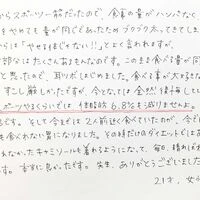 からスポーツ一筋だったので、食事の量がハンパなく
をやめても量が同じであったのでブクブク太ってきてしま
らは「やせるはずない!!」とよく言われますが、
部分はたくさんあるものなのです。このまま食べる量が同
と思ったので、耳ツボはじめました。食べる事が大好きな
すこし難しかったですが、今となっては全然後悔してい
スポーツやるくらいでは 体脂肪 6.8%も減りませんよ。
です。そして今までは2人前近く食べていたのが、今で
も食べれない男になりました。その時だけのダイエットには
れなかったキャミソールも着れるようになって、毎日、晴れば
す。本当に良かったです。先生、ありがとうございました
21才、女